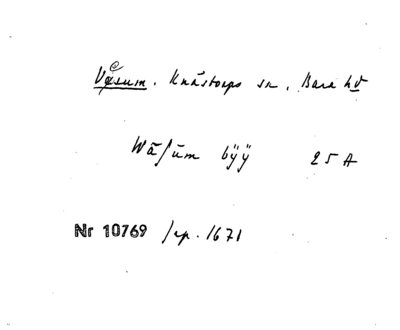 Väsum. Knästorps sn, Bara hd
Wäsum bÿÿ 25 A
Nr 10769 sep. 1671